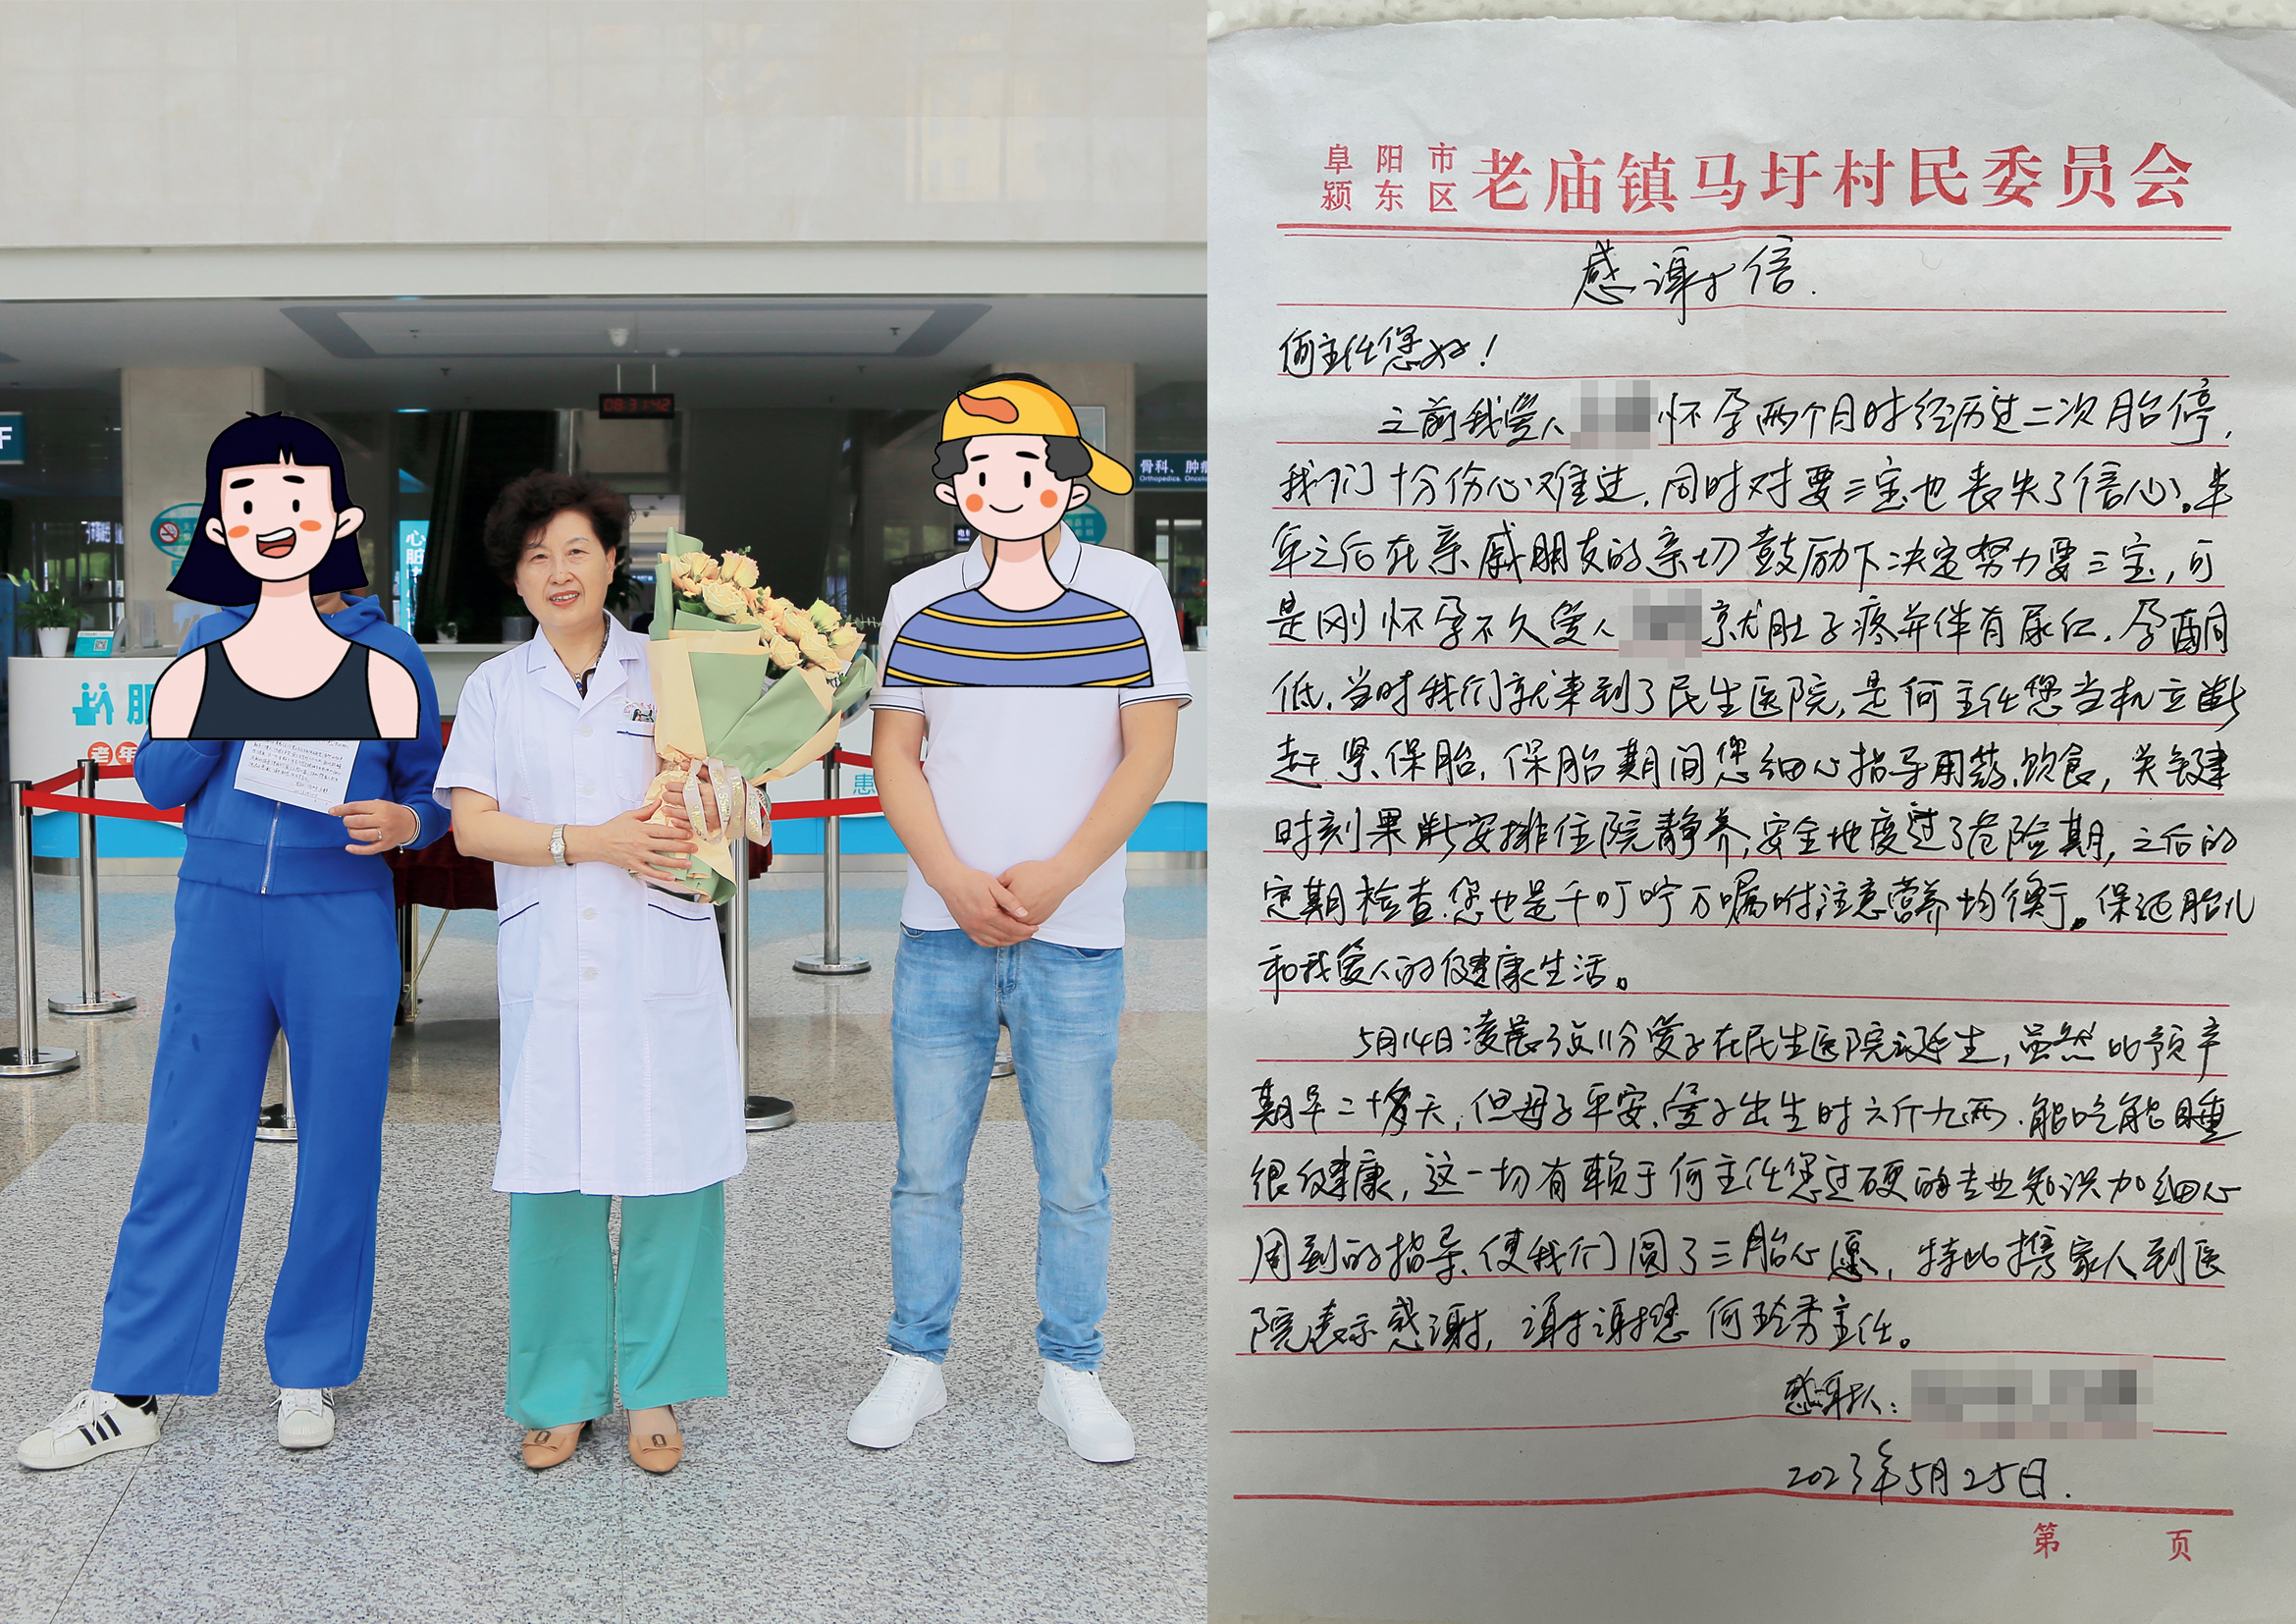 08:31:42
骨科、肿瘤
Orthopedics, Oncolo
心脏
服
老年
患
阜阳市
颍东区
老庙镇马圩村民委员会
感谢信.
何主任您好！
之前我爱人 怀孕两个月时经历过二次胎停,
我们十分伤心难过,同时对要三宝也丧失了信心。半
年之后在亲戚朋友的亲切鼓励下决定努力要三宝,可
是刚怀孕不久爱人 就肚子疼并伴有尿红,孕酮
低,当时我们就来到了民生医院,是何主任您当机立断
赶紧保胎,保胎期间您细心指导用药、饮食,关键
时刻果断安排住院静养,安全地度过了危险期,之后的
定期检查,您也是千叮咛万嘱咐注意营养均衡。保证胎儿
和我爱人的健康生活。
5月14日凌晨3点11分爱子在民生医院诞生,虽然比预产
期早二十多天,但母子平安,爱子出生时六斤九两,能吃能睡
很健康,这一切有赖于何主任您过硬的专业知识加细心
周到的指导、使我们圆了三胎心愿,特此携家人到医
院表示感谢,谢谢您 何玲秀主任。
感谢人:
2023年5月25日.
第 页